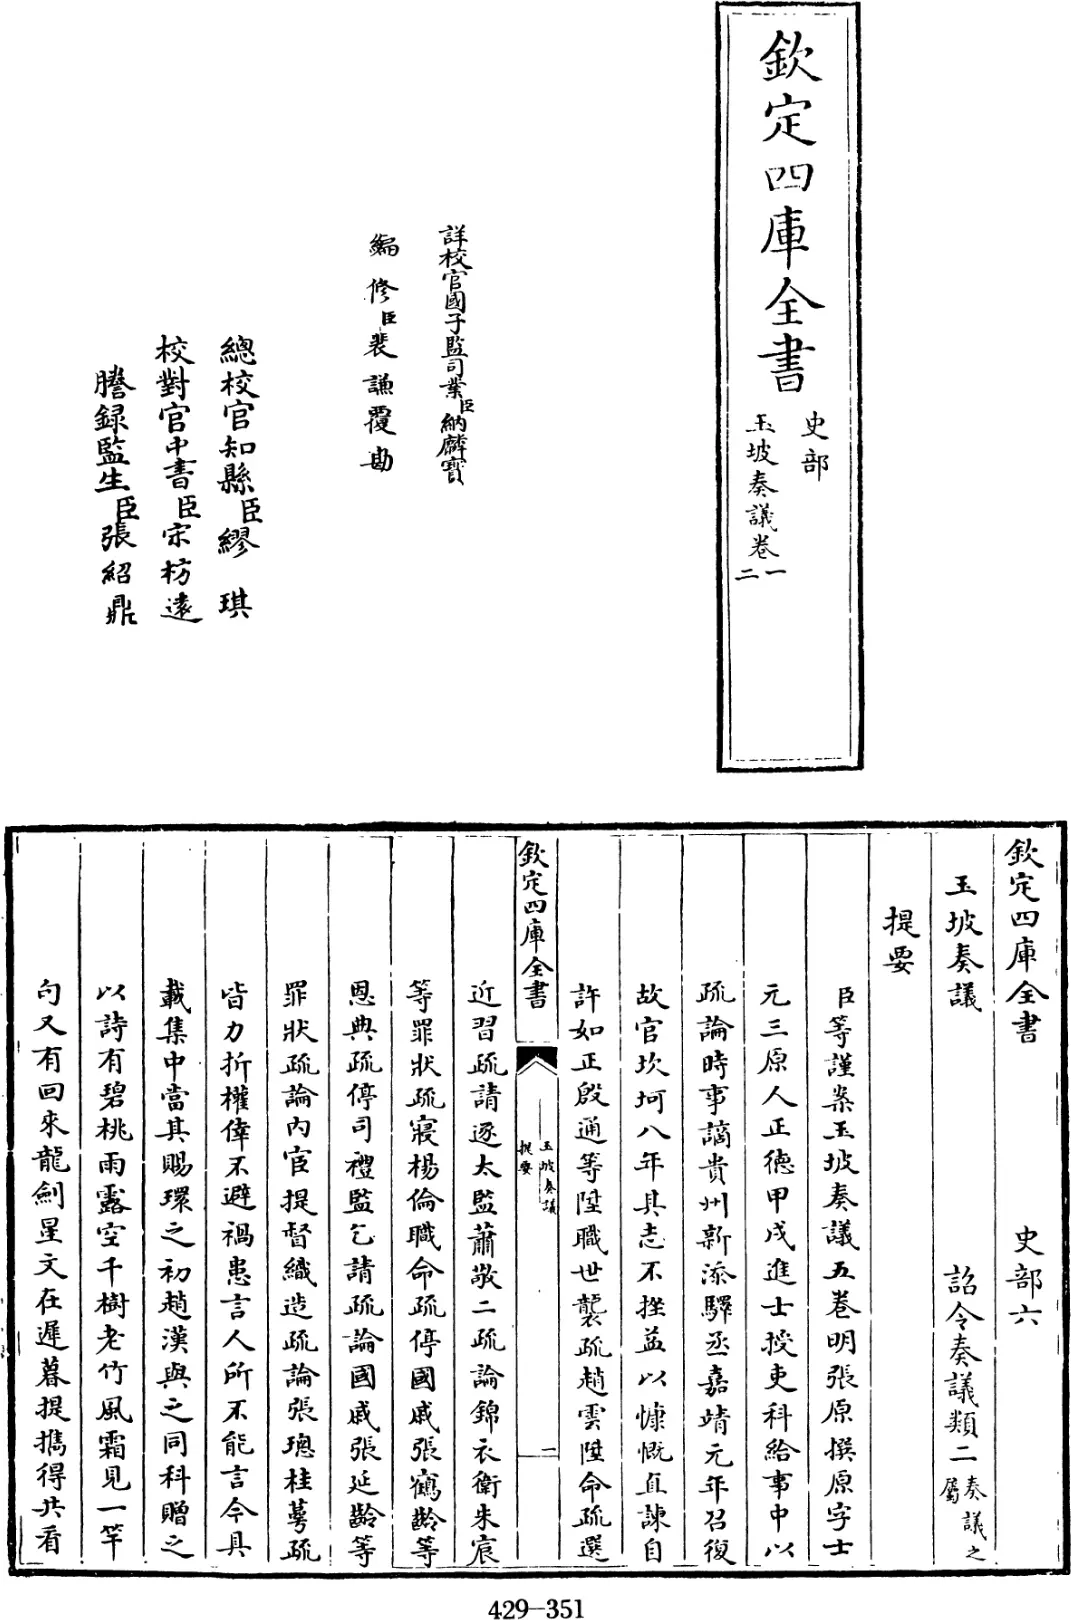 欽定四庫全書
史部
玉坡奏議卷一
二
詳校官國子監司業臣納麟寶
編修臣裴謙覆勘
總校官知縣臣繆琪
校對官中書臣宋枋遠
謄録監生臣張紹鼎
欽定四庫全書 史部六
玉坡奏議 詔令奏議類二奏議之屬
提要
臣等謹案玉坡奏議五卷明張原撰原字士
元三原人正德甲戌進士授吏科給事中以
疏論時事謫貴州新添驛丞嘉靖元年召復
故官坎坷八年其志不挫益以慷慨直諫自
許如正殷通等陞職世襲疏趙雲陞命疏選
欽定四庫全書
玉坡奏議
提要
二
近習疏請逐太監蕭敬二疏論錦衣衛朱宸
等罪狀疏寢楊倫職命疏停國戚張鶴齡等
恩典疏停司禮監乞請疏論國戚張延齡等
罪狀疏論内官提督織造疏論張璁桂萼疏
皆力折權倖不避禍患言人所不能言今具
載集中當其賜環之初趙漢與之同科贈之
以詩有碧桃雨露空千樹老竹風霜見一竿
句又有回來龍劍星文在遲暮提携得共看
429-351